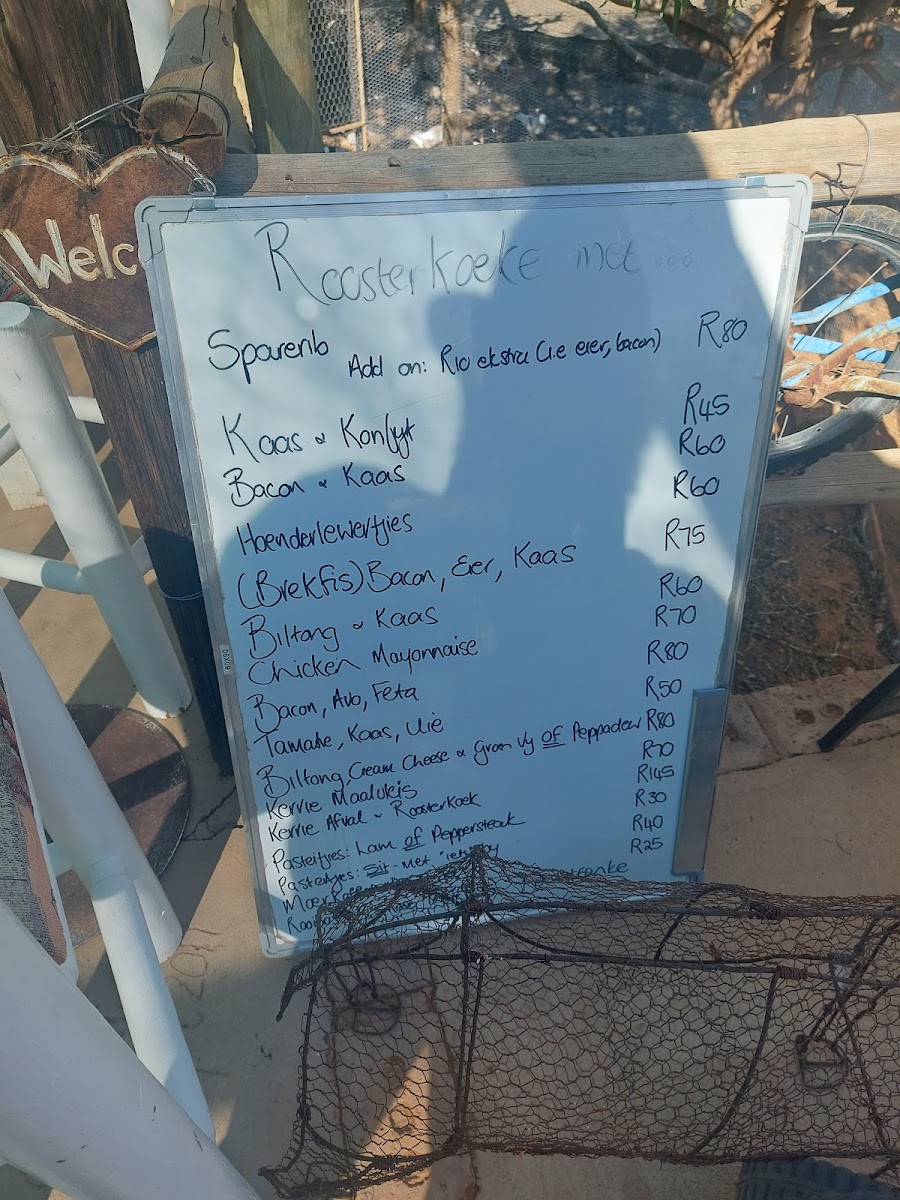 Welc
Roosterkoeke met...
Sparerib R80
Add on: R10 ekstra (i.e eier, bacon)
Kaas & Konfyt R45
Bacon & Kaas R60
Hoenderlewertjies R60
(Brekfis) Bacon, Eier, Kaas R75
Biltong & Kaas R60
Chicken Mayonnaise R70
Bacon, Avo, Feta R80
Tamatie, Kaas, Uie R50
Biltong Cream Cheese & Groen Vy OF Peppadew R80
Kerrie Maalvleis R70
Kerrie Afval & Roosterkoek R145
Pasteitjies: Lam OF Peppersteak R30
Pasteitjies: Sit-Met R40
Moer R25
60X90